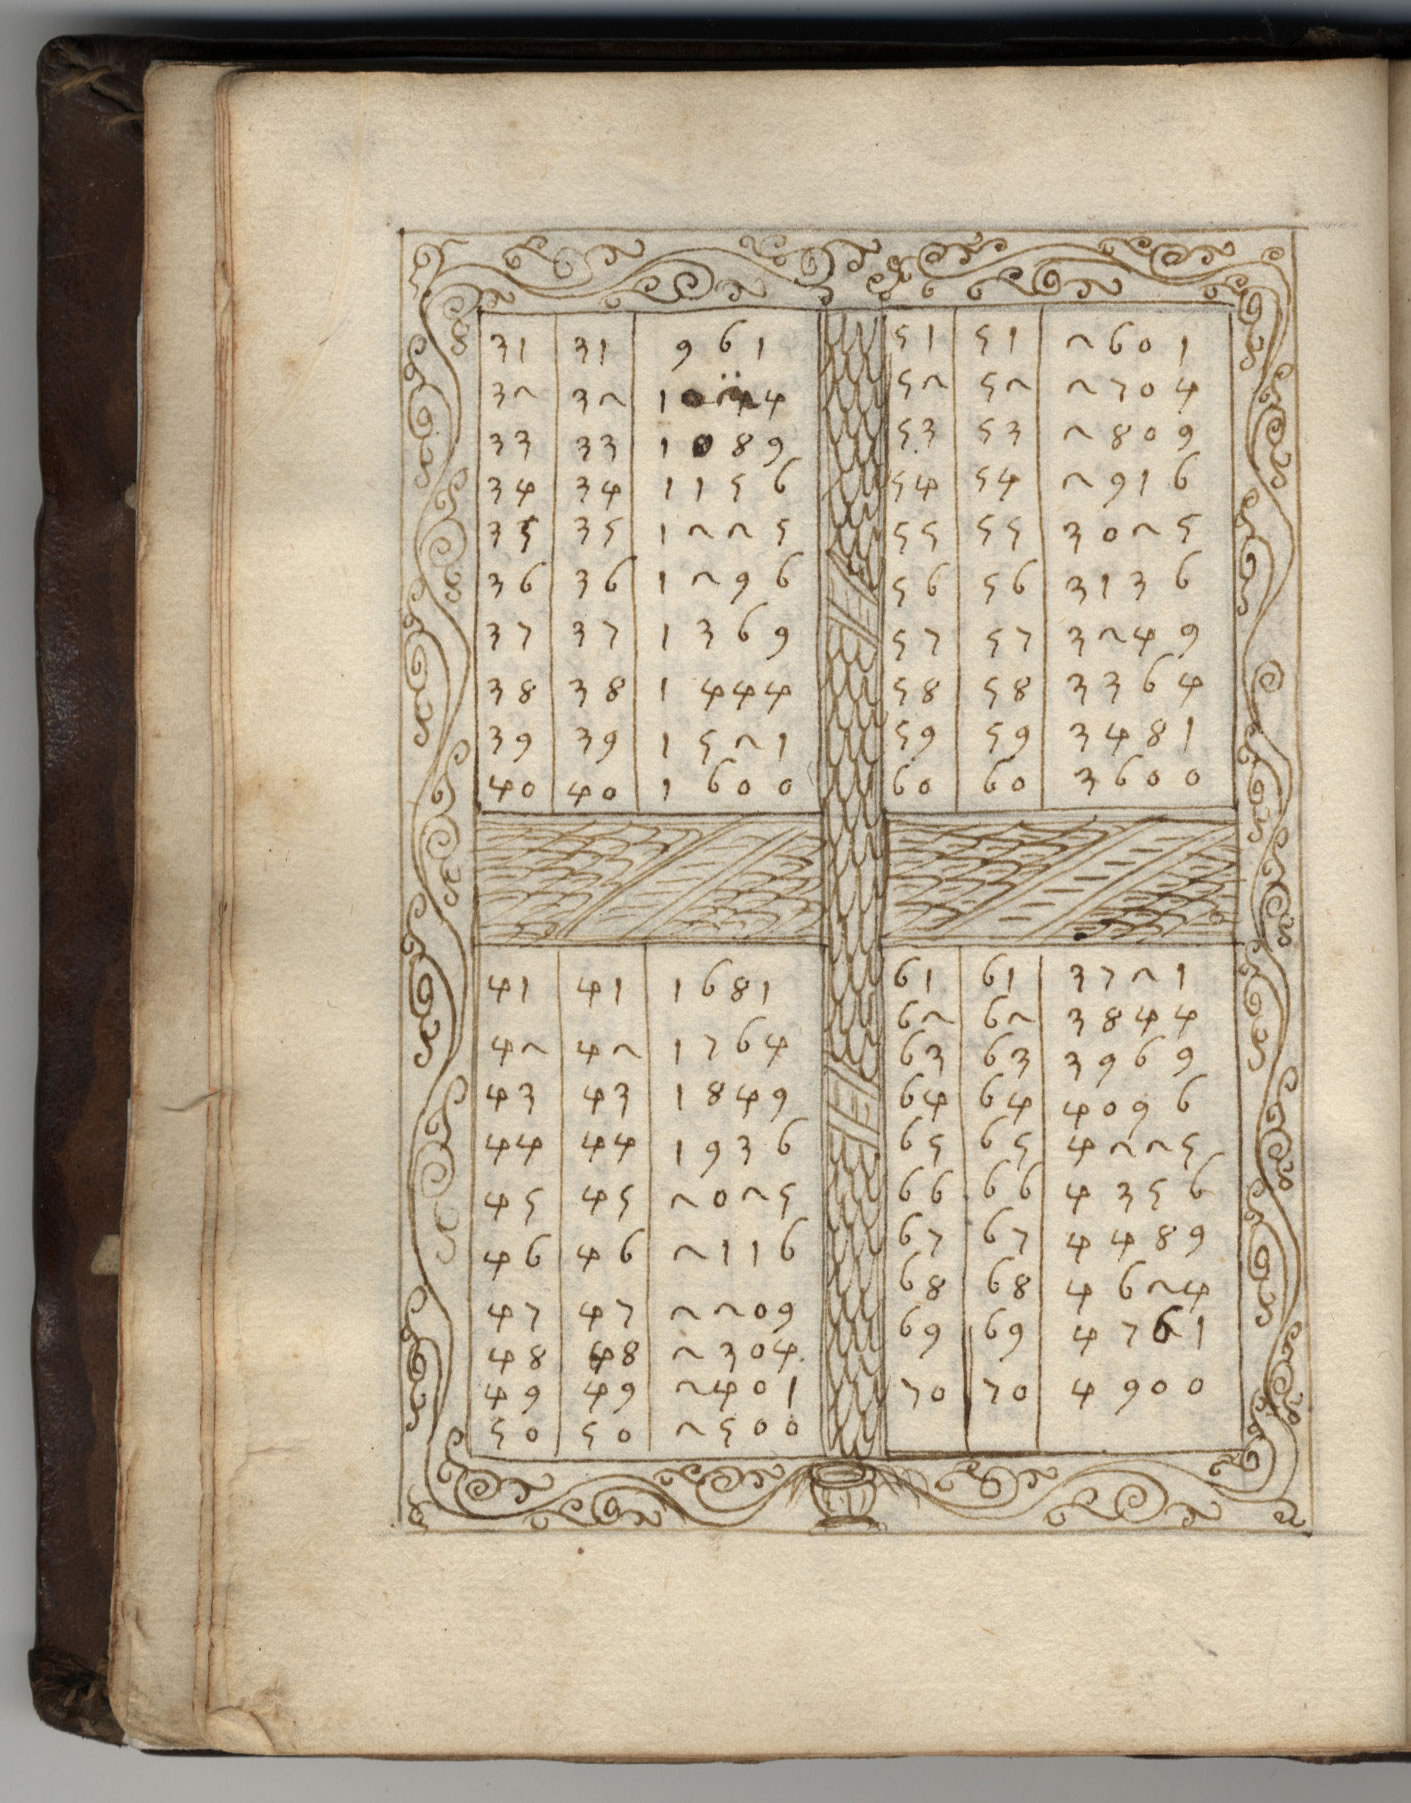 31 31 961
32 32 1024
33 33 1089
34 34 1156
35 35 1225
36 36 1296
37 37 1369
38 38 1444
39 39 1521
40 40 1600
41 41 1681
42 42 1764
43 43 1849
44 44 1936
45 45 2025
46 46 2116
47 47 2209
48 48 2304
49 49 2401
50 50 2500
51 51 2601
52 52 2704
53 53 2809
54 54 2916
55 55 3025
56 56 3136
57 57 3249
58 58 3364
59 59 3481
60 60 3600
61 61 3721
62 62 3844
63 63 3969
64 64 4096
65 65 4225
66 66 4356
67 67 4489
68 68 4624
69 69 4761
70 70 4900